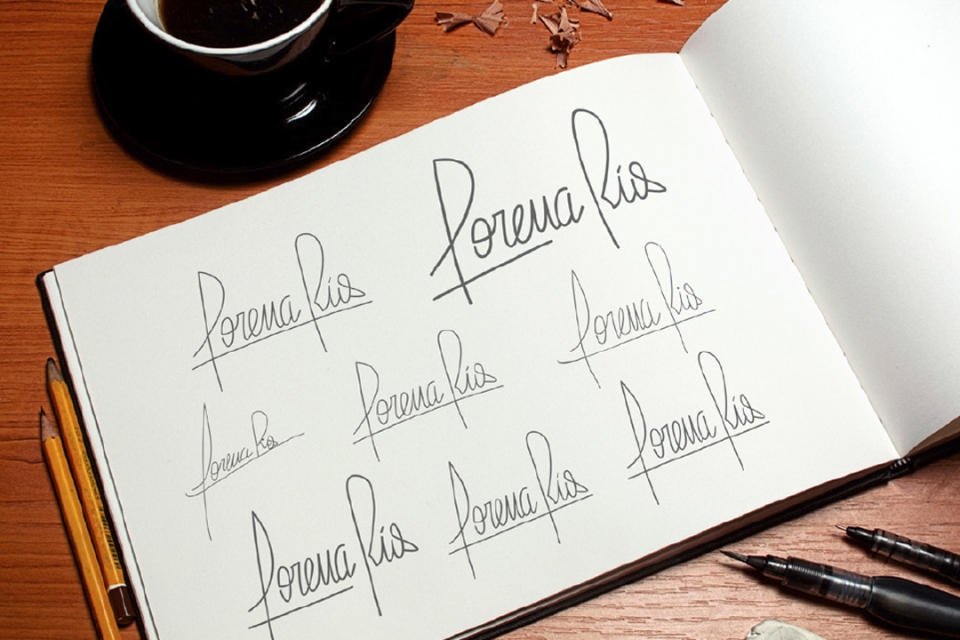 Lorena Ríos
Lorena Ríos
Lorena Ríos
Lorena Ríos
Lorena Ríos
Lorena Ríos
Lorena Ríos
Lorena Ríos